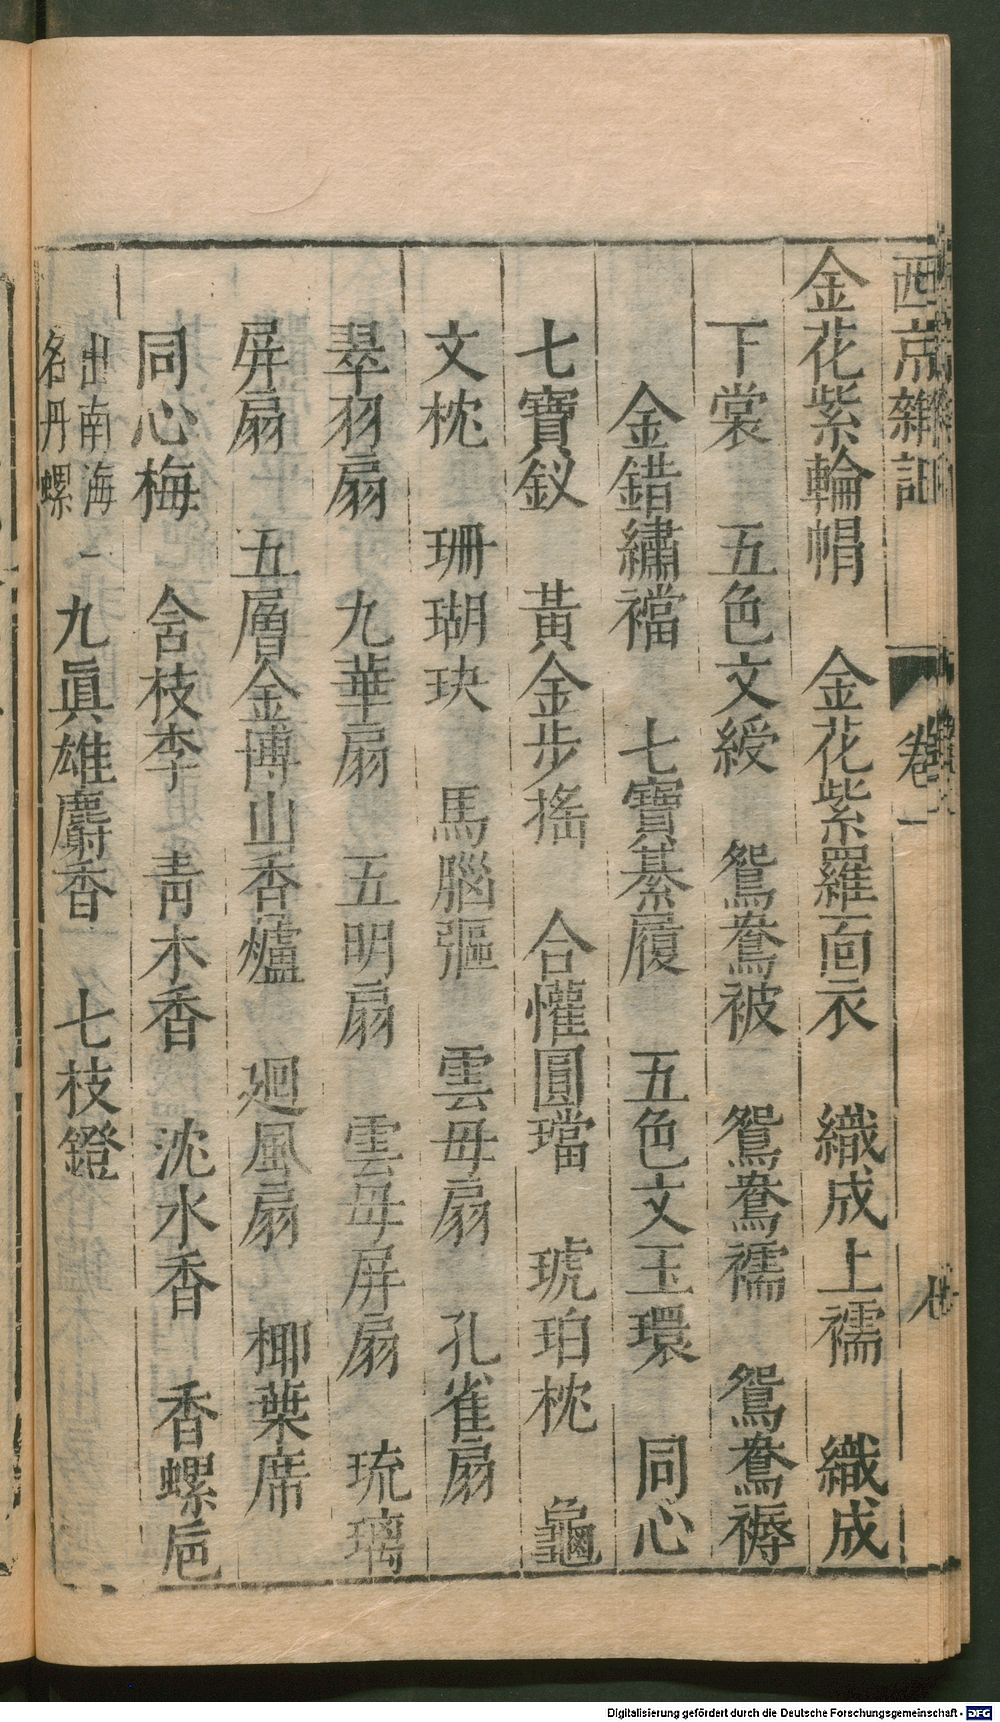 西京雜記 卷一
金花紫輪帽 金花紫羅面衣 織成上襦 織成
下裳 五色文綬 鴛鴦被 鴛鴦襦 鴛鴦褥
金錯繡襠 七寶綦履 五色文玉環 同心
七寶釵 黃金步搖 合懽圓璫 琥珀枕 龜
文枕 珊瑚玦 馬腦彄 雲母扇 孔雀扇
翠羽扇 九華扇 五明扇 雲母屏扇 琉璃
屏扇 五層金博山香爐 廻風扇 椰葉席
同心梅 含枝李 青木香 沈水香 香螺巵
出南海
名丹螺
九眞雄麝香 七枝鐙
Digitalisierung gefördert durch die Deutsche Forschungsgemeinschaft - DFG